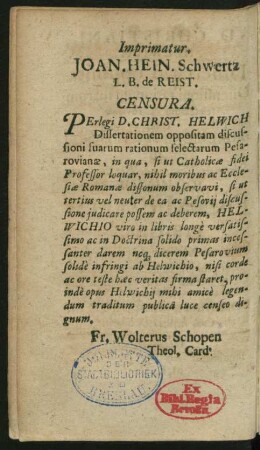 Imprimatur.
JOAN. HEIN. Schwertz
L. B. de REIST.
CENSURA.
PErlegi D. CHRIST. HELWICH
Dissertationem oppositam discus-
sioni suarum rationum selectarum Pesa-
rovianæ, in qua, si ut Catholicæ fidei
Professor loquar, nihil moribus ac Eccle-
siæ Romanæ dissonum observavi, si ut
tertius vel neuter de ea ac Pesovij discus-
sione judicare possem ac deberem, HEL-
WICHIO viro in libris longè versatis-
simo ac in Doctrina solido primas inces-
santer darem neq; dicerem Pesarovium
solidè infringi ab Helwichio, nisi corde
ac ore teste hæc veritas firma staret, pro-
indè opus Helwichij mihi amicè legen-
dum traditum publicâ luce censeo di-
gnum.
Fr. Wolterus Schopen
Theol, Card.
STAATSBIBLIOTHEK
BRESLAU
Ex
Bibl. Regia